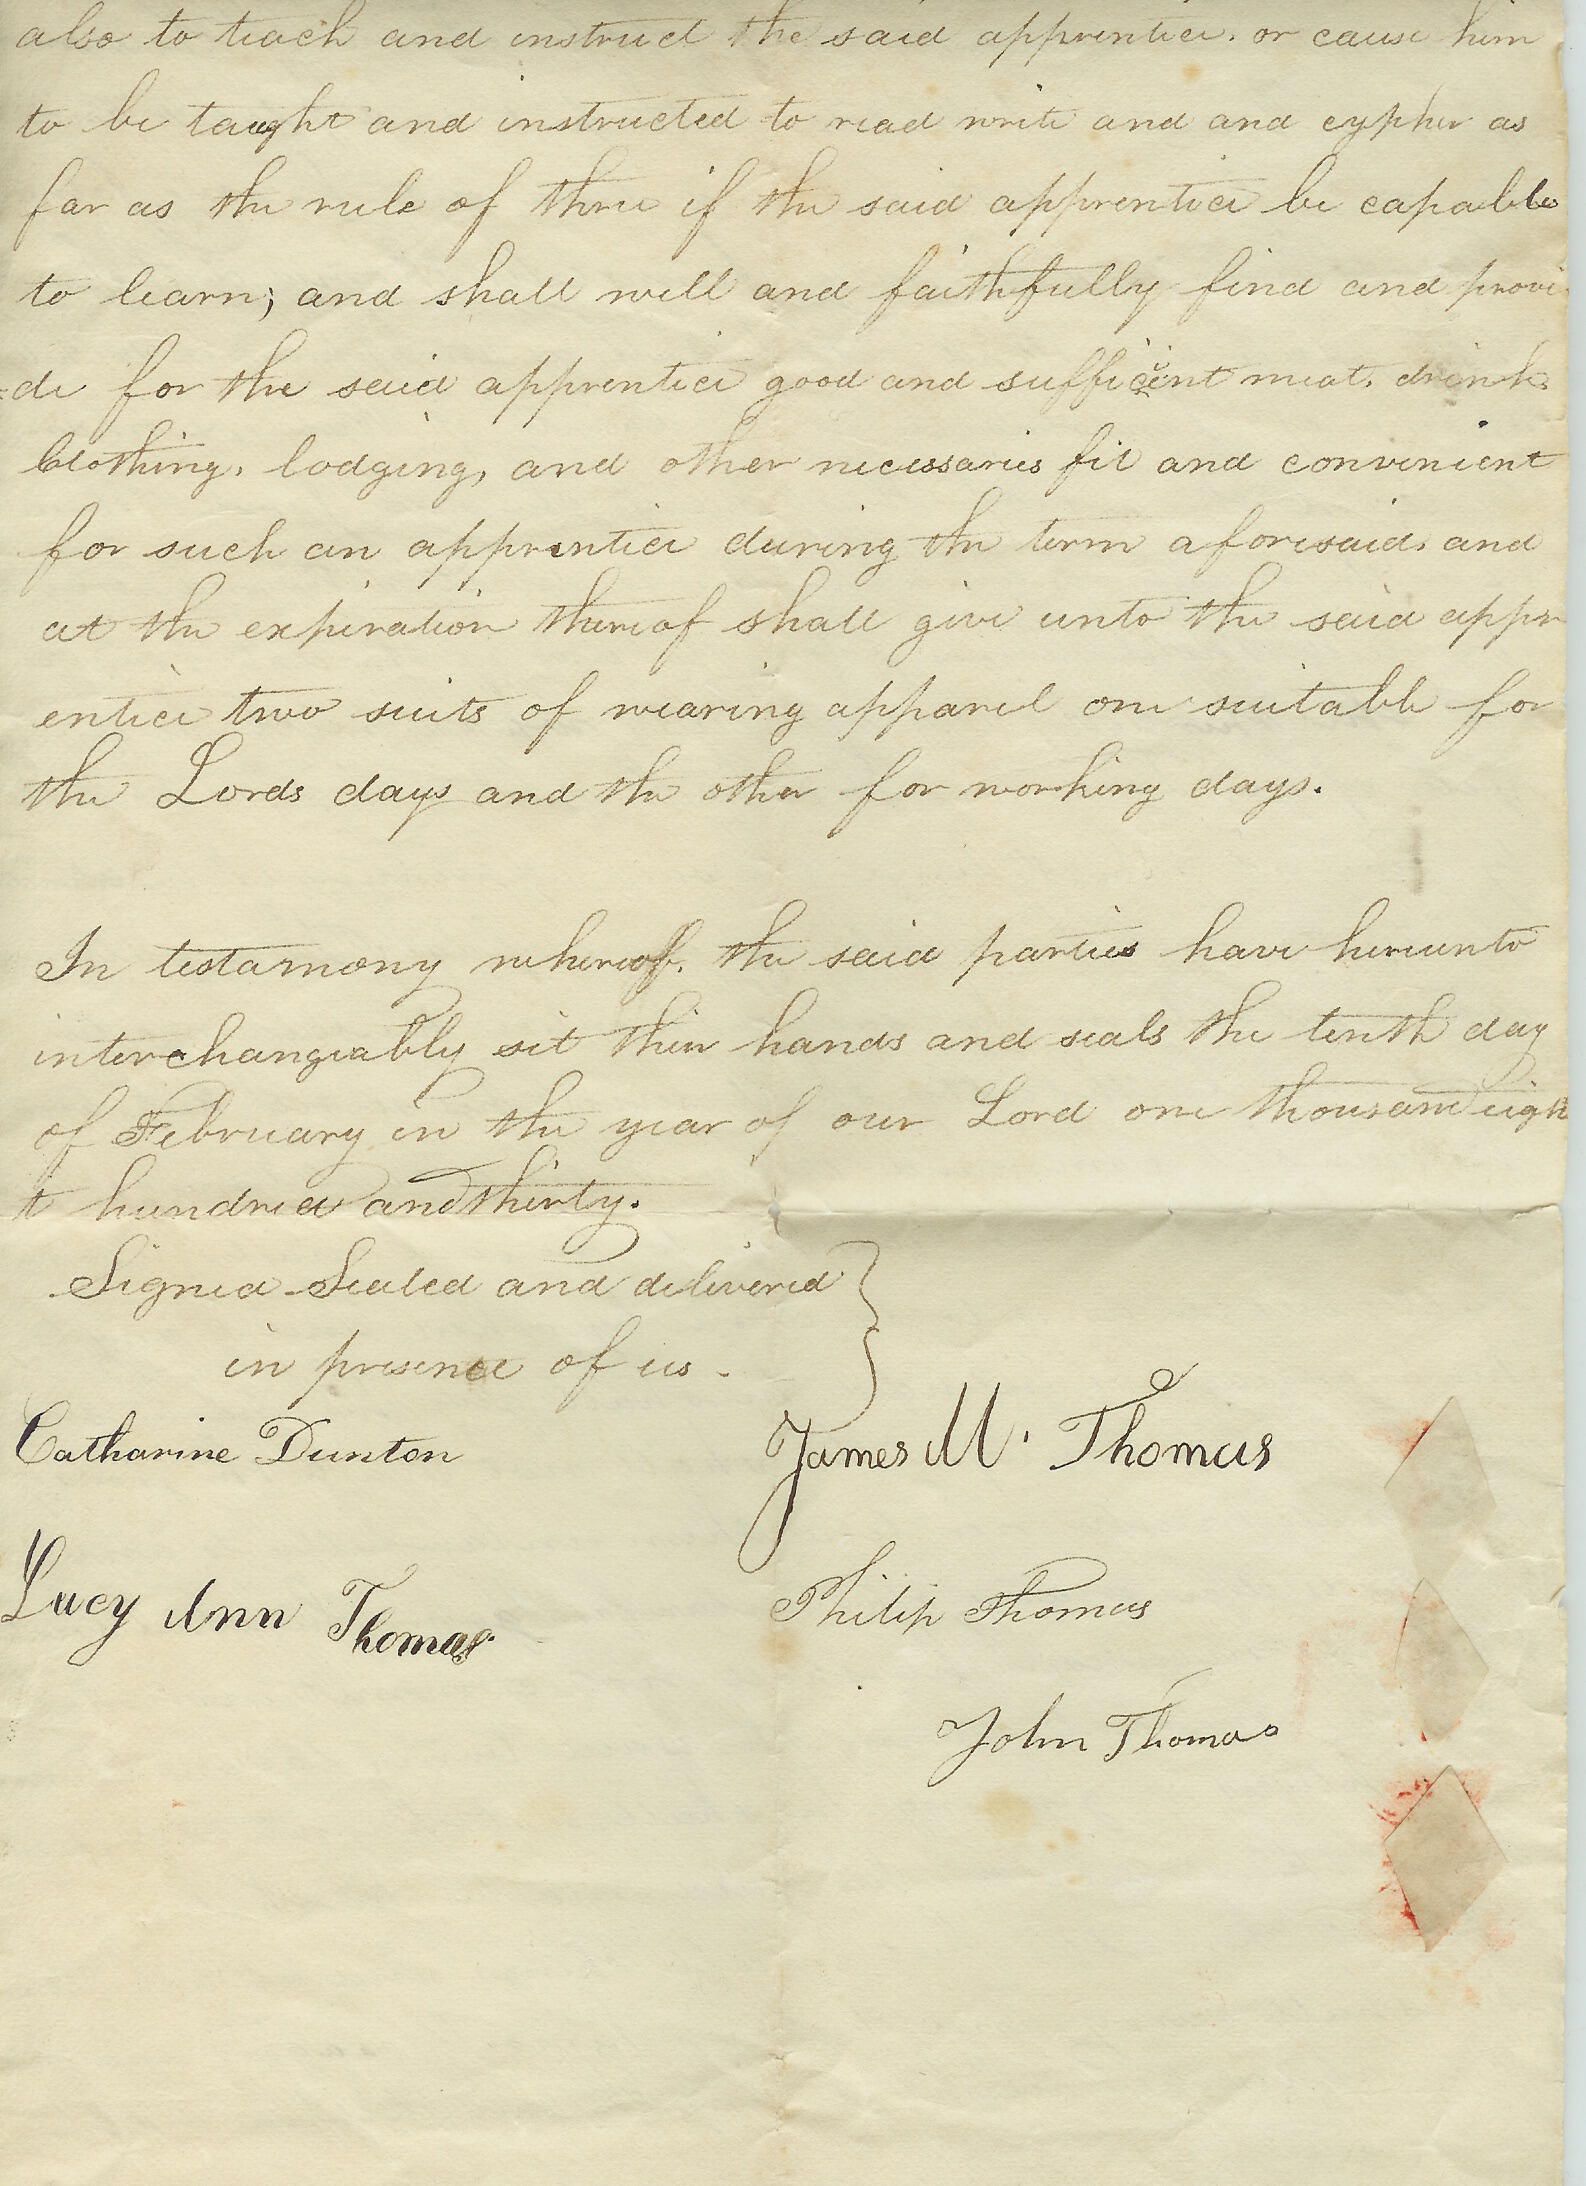 also to teach and instruct the said apprentice, or cause him
to be taught and instructed to read write and and cypher as
far as the rule of three if the said apprentice be capable
to learn; and shall well and faithfully find and provi
=de for the said apprentice good and sufficient meat, drink,
Clothing, lodging, and other necessaries fit and convenient
for such an apprentice during the term aforesaid, and
at the expiration thereof shall give unto the said appr
entice two suits of wearing apparel one suitable for
the Lords days and the other for working days.
In testamony whereof, the said parties have hereunto
interchangeably set their hands and seals the tenth day
of February in the year of our Lord one thousand eigh
t hundred and thirty.
Signed Sealed and delivered
in presence of us -
Catharine Dunton
James M. Thomas
Lucy Ann Thomas
Philip Thomas
John Thomas